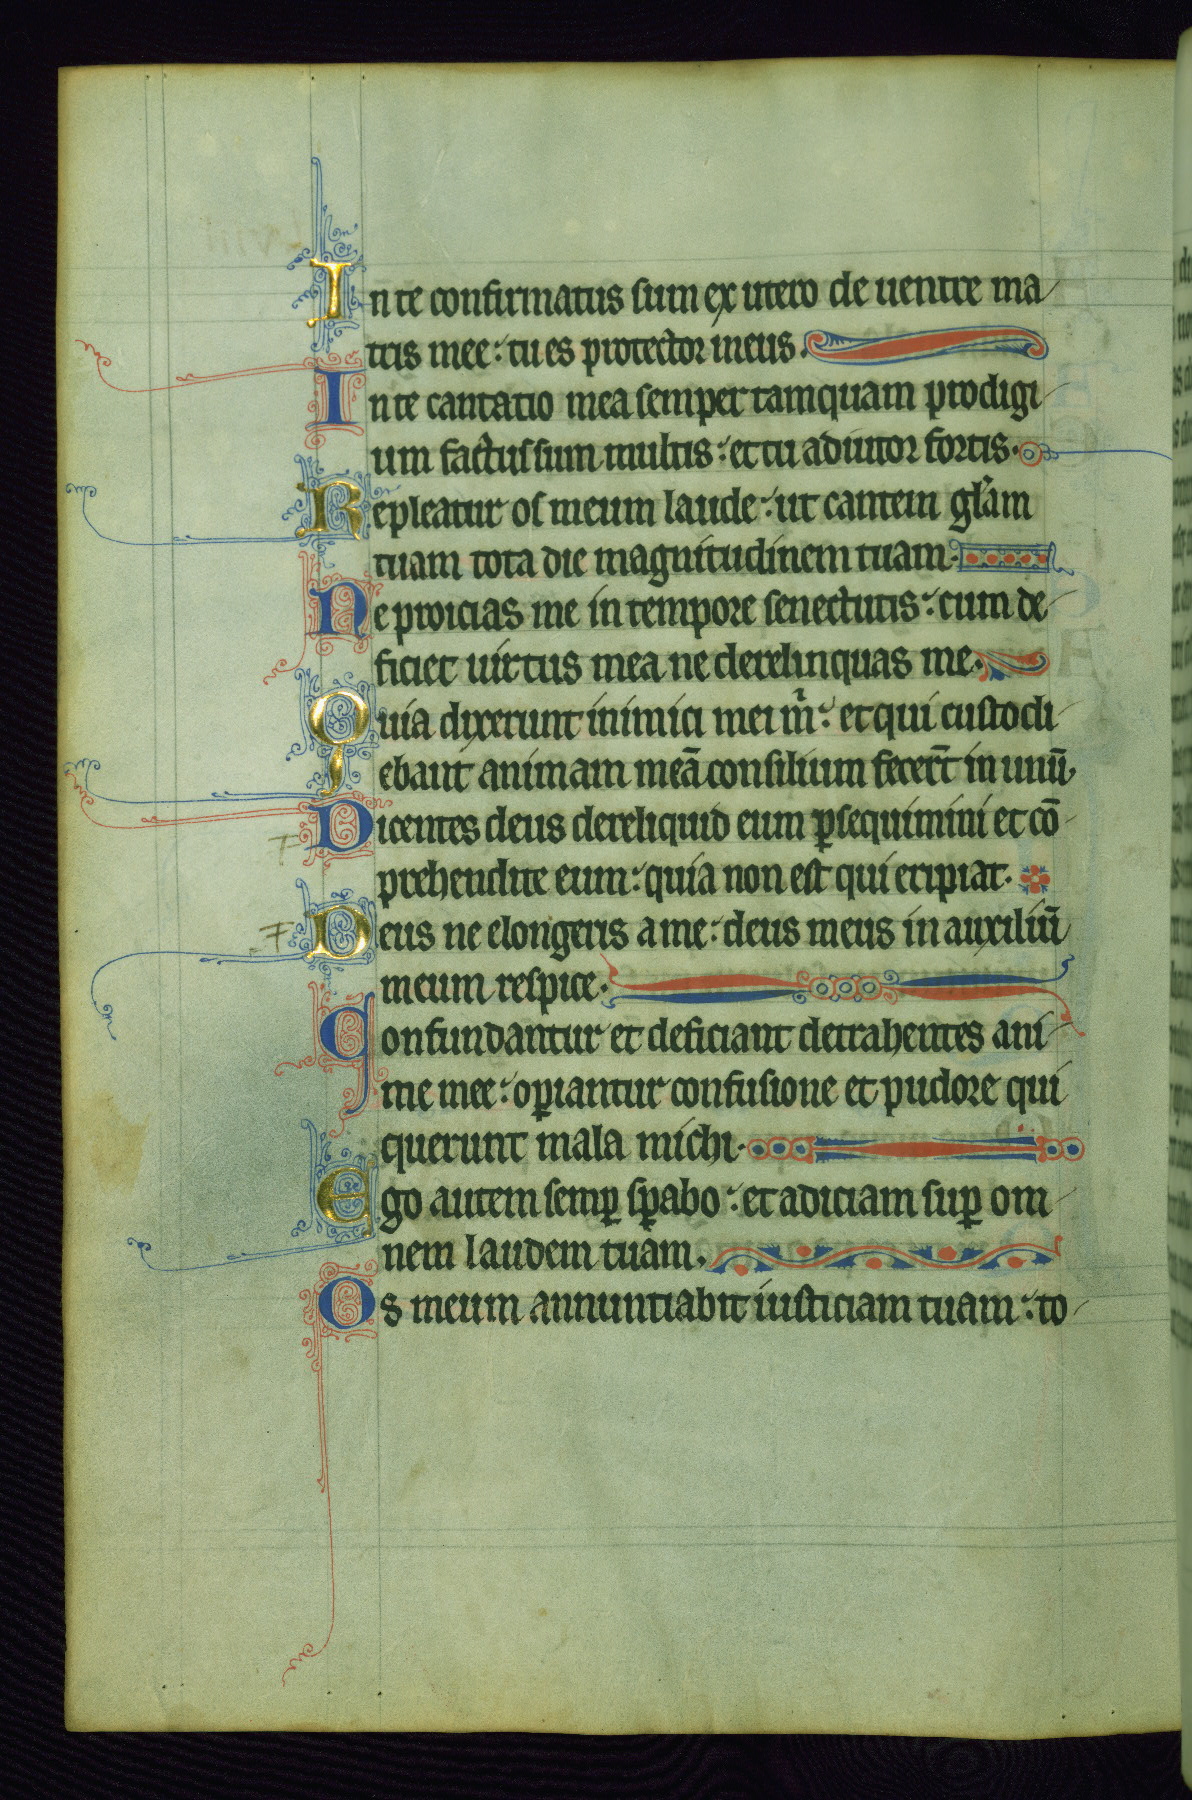 In te confirmatus sum ex utero de uentre ma
tris mee: tu es protector meus.
In te cantatio mea semper tamquam prodigi
um factus sum multis: et tu adiutor fortis.
Repleatur os meum laude: ut cantem gl̃am
tuam tota die magnitudinem tuam.
Ne proicias me in tempore senectutis: cum de
ficiet uirtus mea ne derelinquas me.
Quia dixerunt inimici mei m̃: et qui custodi
ebant animam meã consilium fecer̃t in unũ,
Dicentes deus dereliquid eum ꝑsequimini et cõ
prehendite eum: quia non est qui eripiat.
Deus ne elongeris a me: deus meus in auxiliũ
meum respice.
Confundantur et deficiant detrahentes ani
me mee: oꝑiantur confusione et pudore qui
querunt mala michi.
Ego autem semꝑ sꝑabo: et adiciam suꝑ om
nem laudem tuam.
Os meum annuntiabit iusticiam tuam: to